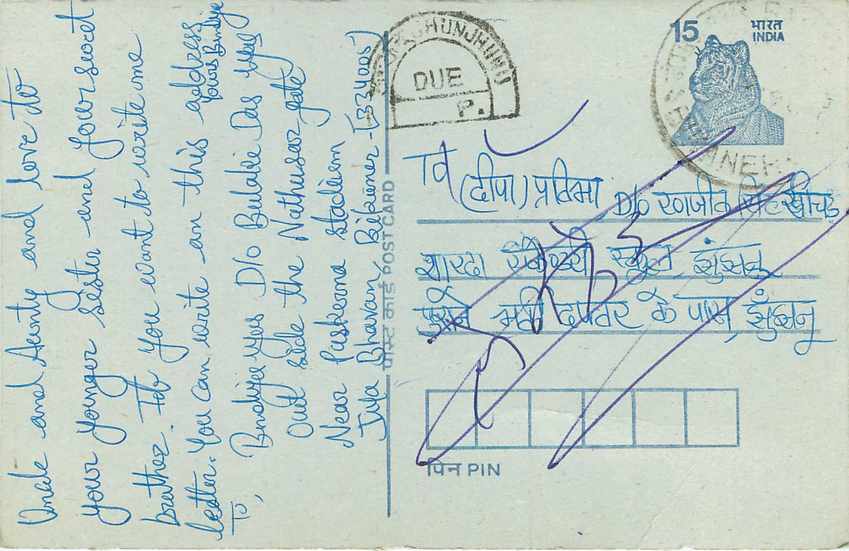 Uncle and Aunty and love to
your younger sister and your sweet
brother. If you want to write me
letter. You can write an this address
Yours Bindiya
To,
Bindiya vyas D/o Bulakie Das vyas
Out side the Nathusar gate
Near Puskerna stadium
Bhavan, Bikaner-(334005)
पोस्ट कार्ड POST CARD
JHUNJHUNU
DUE
P.
15
भारत
INDIA
To
(दीपा) प्रतिमा D/o रणजीत
शारदा स्कूल, झुंझुनू
दफ्तर के पास, झुंझुनू
पिन PIN